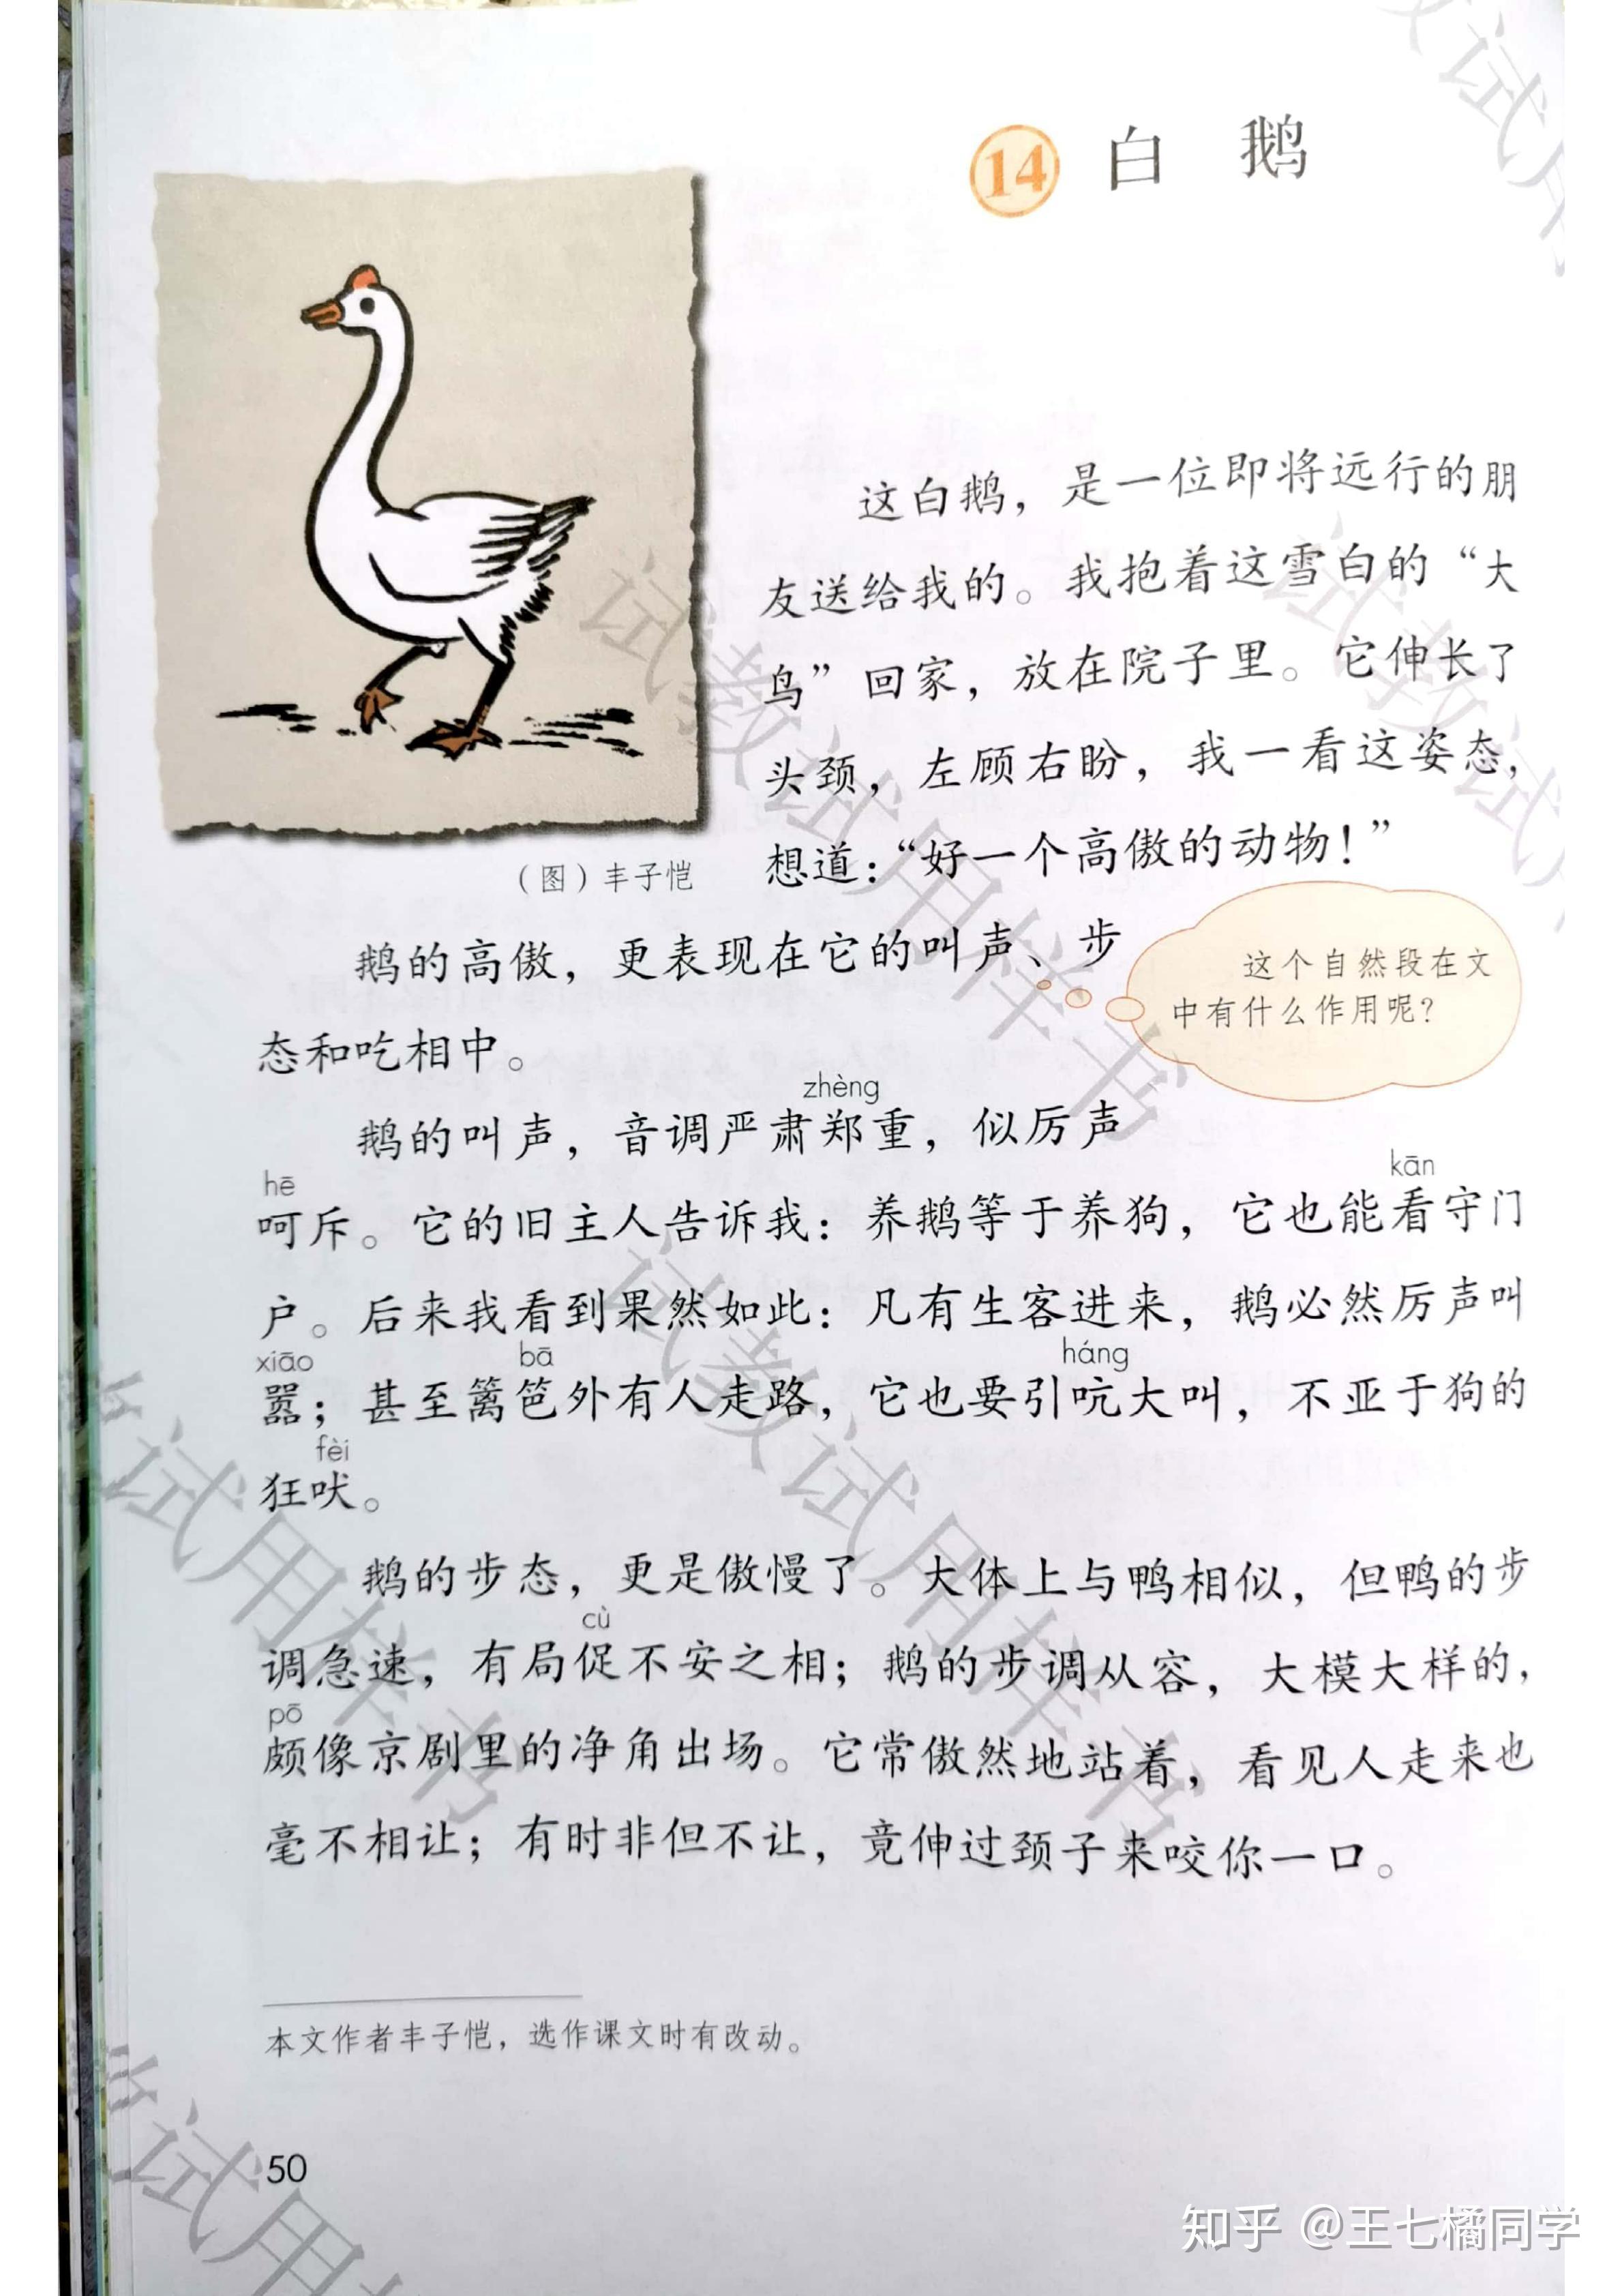 14 白 鹅
这白鹅，是一位即将远行的朋
友送给我的。我抱着这雪白的“大
鸟”回家，放在院子里。它伸长了
头颈，左顾右盼，我一看这姿态，
想道：“好一个高傲的动物！”
（图）丰子恺
鹅的高傲，更表现在它的叫声、步
态和吃相中。
这个自然段在文
中有什么作用呢？
zhèng
鹅的叫声，音调严肃郑重，似厉声
hē kān
呵斥。它的旧主人告诉我：养鹅等于养狗，它也能看守门
户。后来我看到果然如此：凡有生客进来，鹅必然厉声叫
xiāo bā háng
嚣；甚至篱笆外有人走路，它也要引吭大叫，不亚于狗的
fèi
狂吠。
鹅的步态，更是傲慢了。大体上与鸭相似，但鸭的步
cù
调急速，有局促不安之相；鹅的步调从容，大模大样的，
pō
颇像京剧里的净角出场。它常傲然地站着，看见人走来也
毫不相让；有时非但不让，竟伸过颈子来咬你一口。
本文作者丰子恺，选作课文时有改动。
50
知乎 @王七橘同学
试教试用样书
试教试用样书
试教试用样书